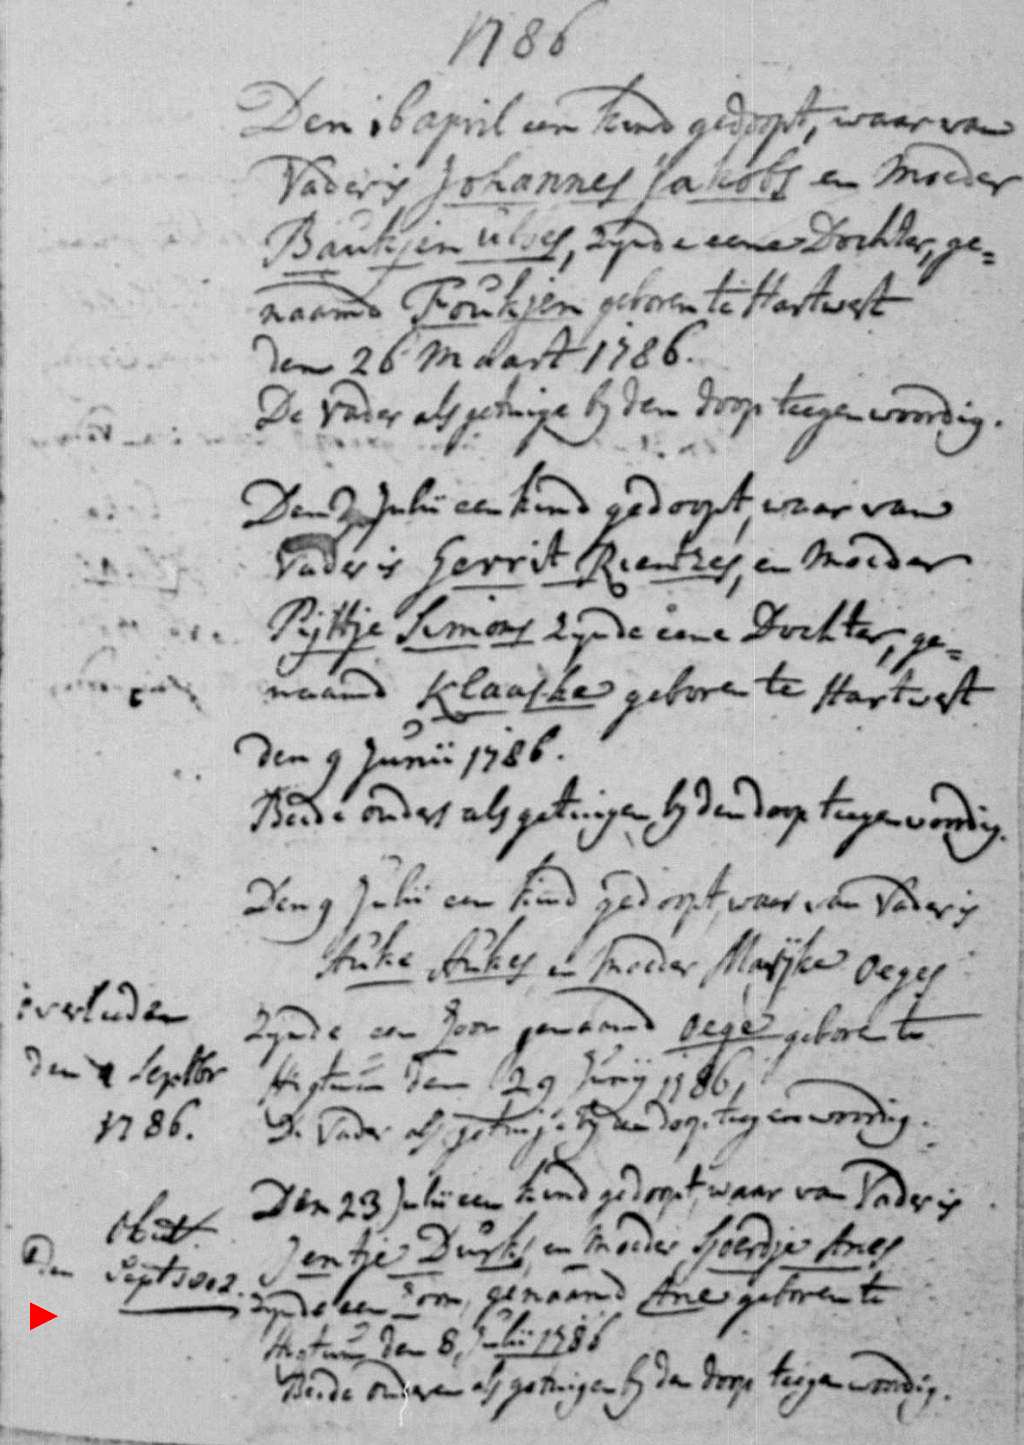 1786
Den 16 april een kind gedoopt, waar van
Vader is Johannes Jakobs en Moeder
Baukjen Ulbes, zynde eene Dochter, ge=
naamd Foukjen geboren te Hartwert
den 26 Maart 1786.
De Vader als getuige by den doop teegenwoordig.
Den 2 Julii een kind gedoopt, waar van
Vader is Gerrit Rientzes, en Moeder
Pijttje Simons zynde eene Dochter, ge=
naamd Klaaske geboren te Hartwert
den 9 Junii 1786.
Beide ouders als getuigen by den doop teegenwoordig.
Den 9 Julii een kind gedoopt, waar van Vader is
Auke Aukes, en Moeder Marijke Oeges
zynde een Zoon genaamd Oege geboren te
Higtum den 29 Junij 1786,
De Vader als getuige by den doop teegenwoordig.
overleeden
den Septbr
1786.
Den 23 Julii een kind gedoopt, waar van Vader is
Jentje Durks, en Moeder Sjoerdje Anes
zynde een Zoon, genaamd Ane geboren te
Higtum den 8, Julii 1786
Beide ouderen als getuigen by den doop teegenwoordig.
obiit
den Sept 1802.